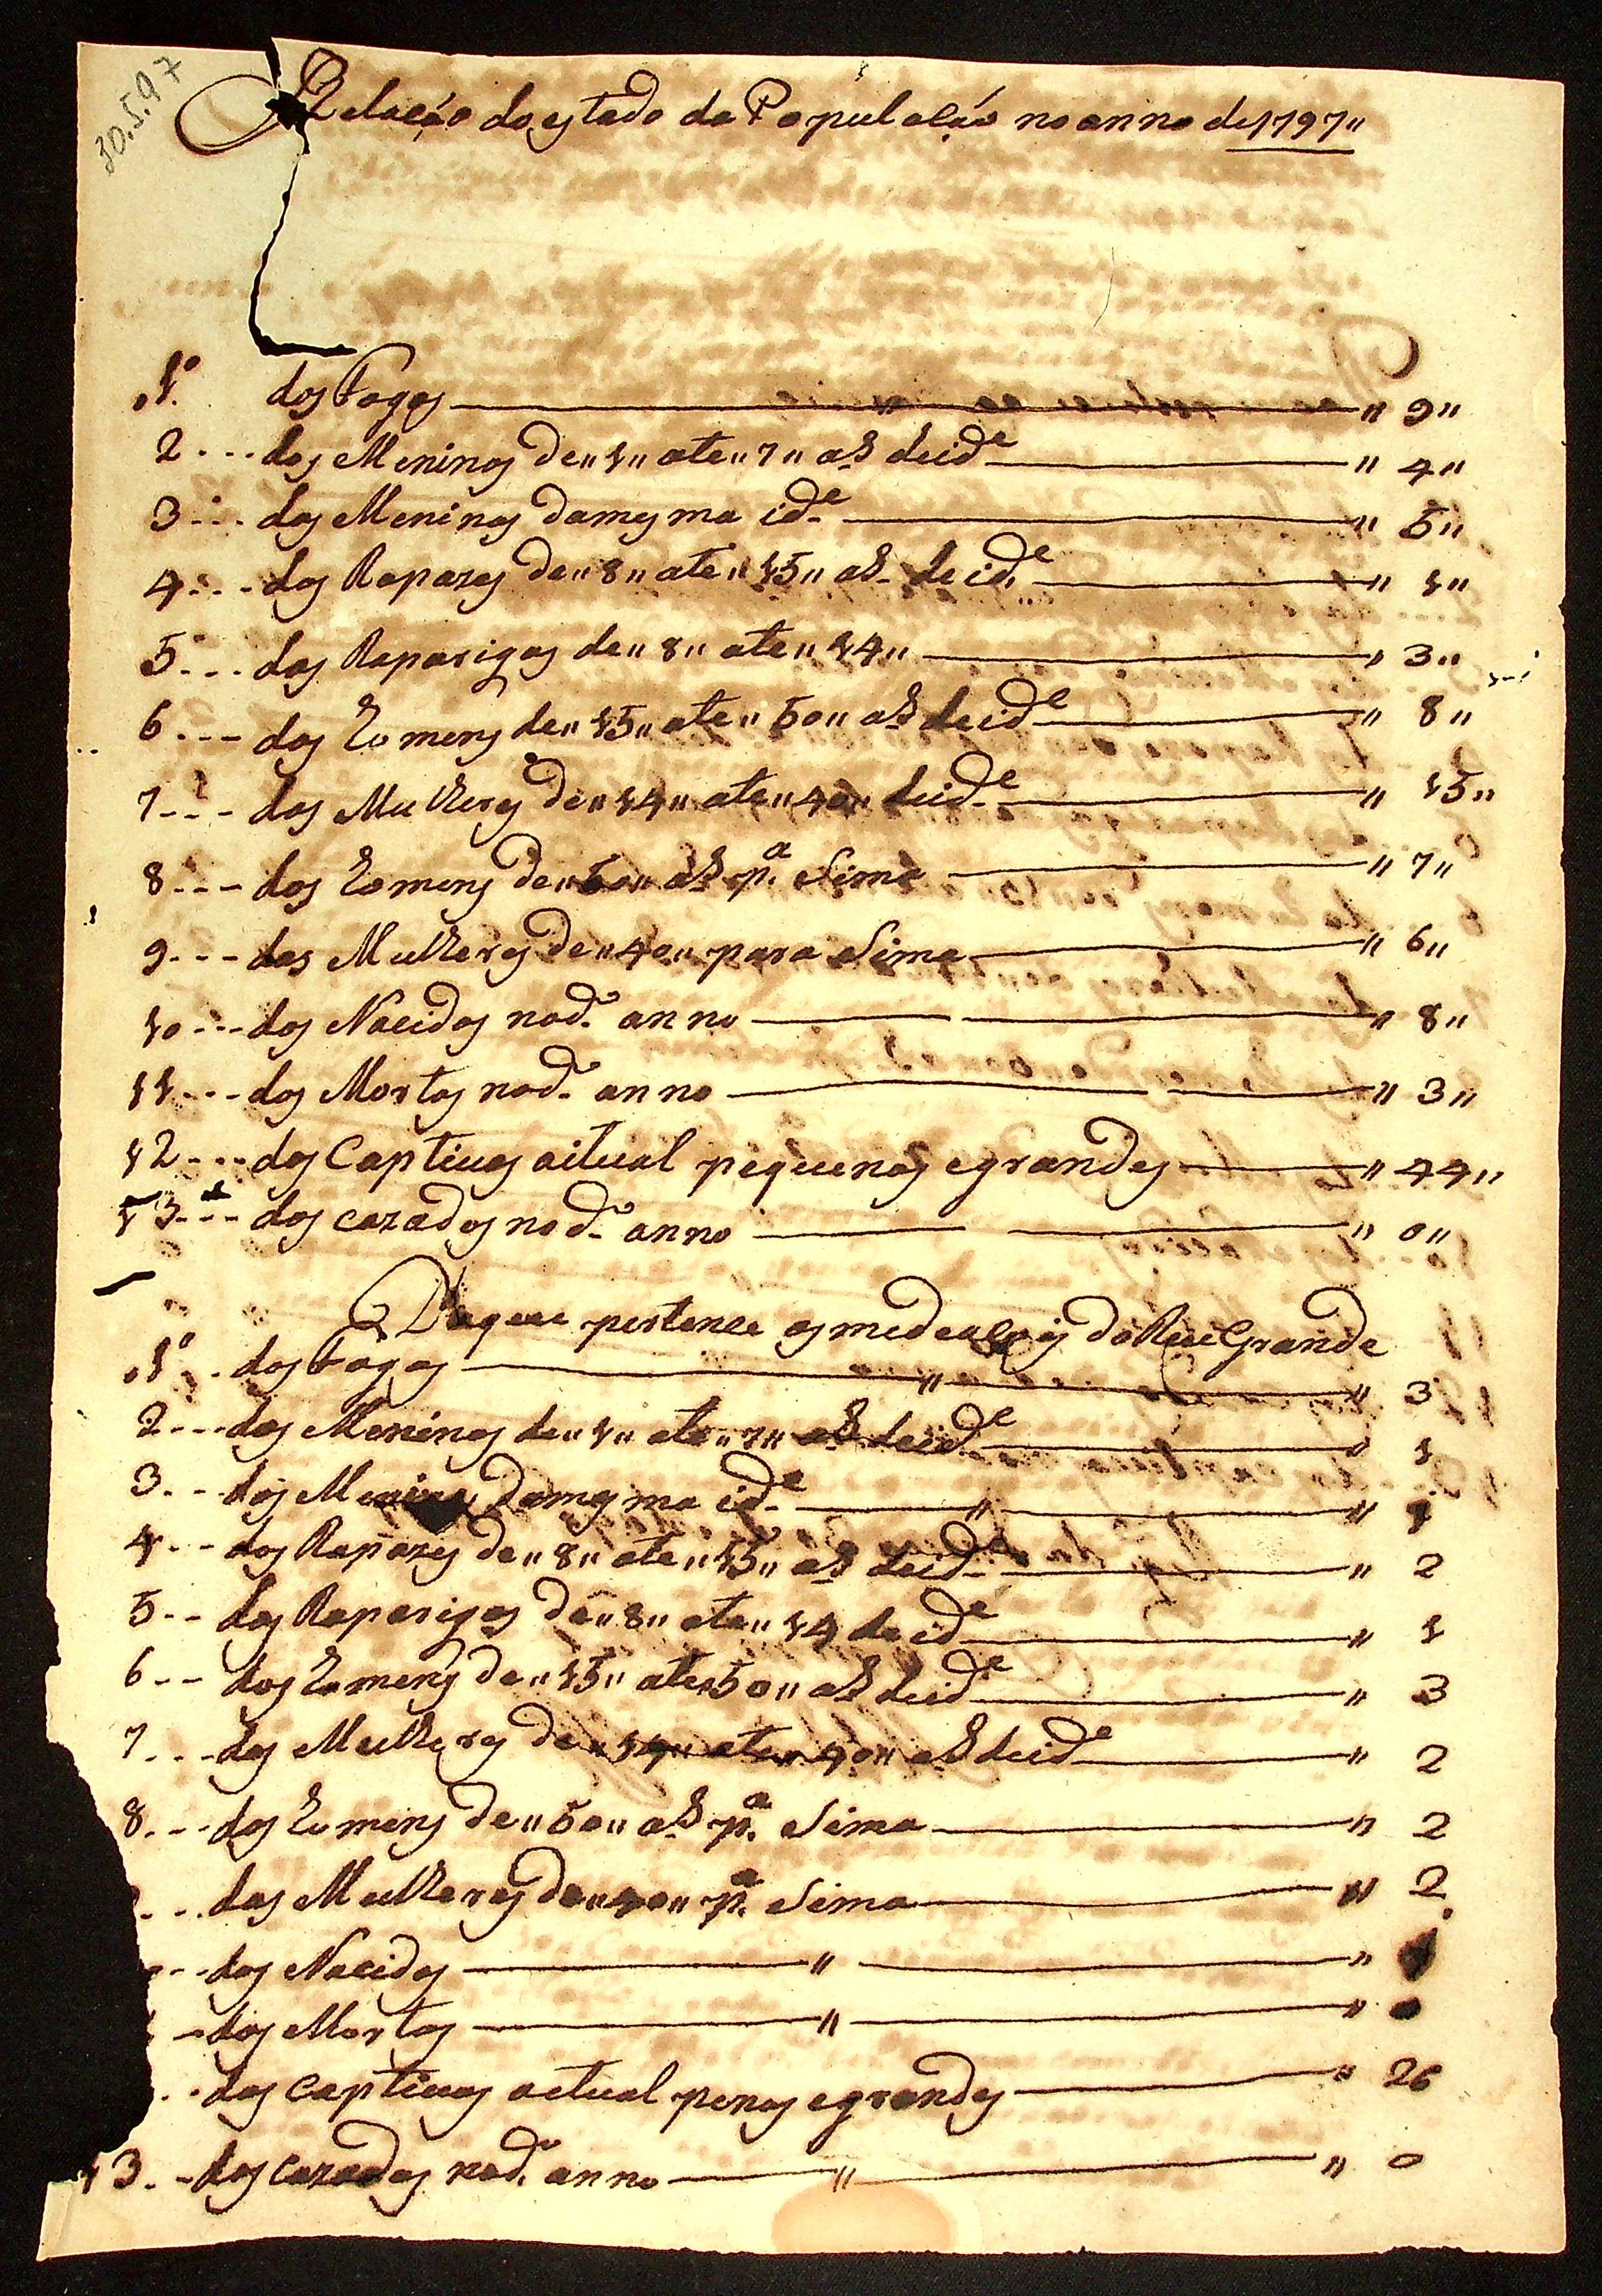 30.5.97
Relação do estado da População no anno de 1797"
1º dos Fogos " 9"
2 dos Meninos de "1" ate "7" as de id.e " 4"
3 das Meninas da mesma id.e " 5"
4 dos Rapazes de "8" ate "15" as de id.e " 1"
5 das Raparigas de "8" ate "14" " 3"
6 dos Homens de "15" ate "50" as de id.e " 8"
7 das Mulheres de "14" ate "40" de id.e " 15"
8 dos Homens de "50" as p.a Sima " 7"
9 das Mulheres de "40" para Sima " 6"
10 dos Nacidos no d.o anno " 8"
11 dos Mortos no d.o anno " 3"
12 dos Captivos aitual piquenos e grandes " 44"
13 dos cazados no d.o anno " 0"
pertence as medeaçois do Rue Grande
1º dos Fogos " " 3
2 dos Meninos de "1" ate "7" as de id.e 1
3 das Meninas da mesma id.e " "
4 dos Rapazes de "8" ate "15" as de id.e " 2
5 das Raparigas de "8" ate "14 de id.e " 1
6 dos Homens de "15" ate "50" as de id.e " 3
7 das Mulheres de "14" ate "40" as de id.e " 2
8 dos Homens de "50" as p.a Sima " 2
das Mulheres de "40" p.a Sima " 2
dos Nacidos " "
dos Mortos " "
dos captivos actual penos e grandes " 26
13 dos cazados no d.o anno " " 0